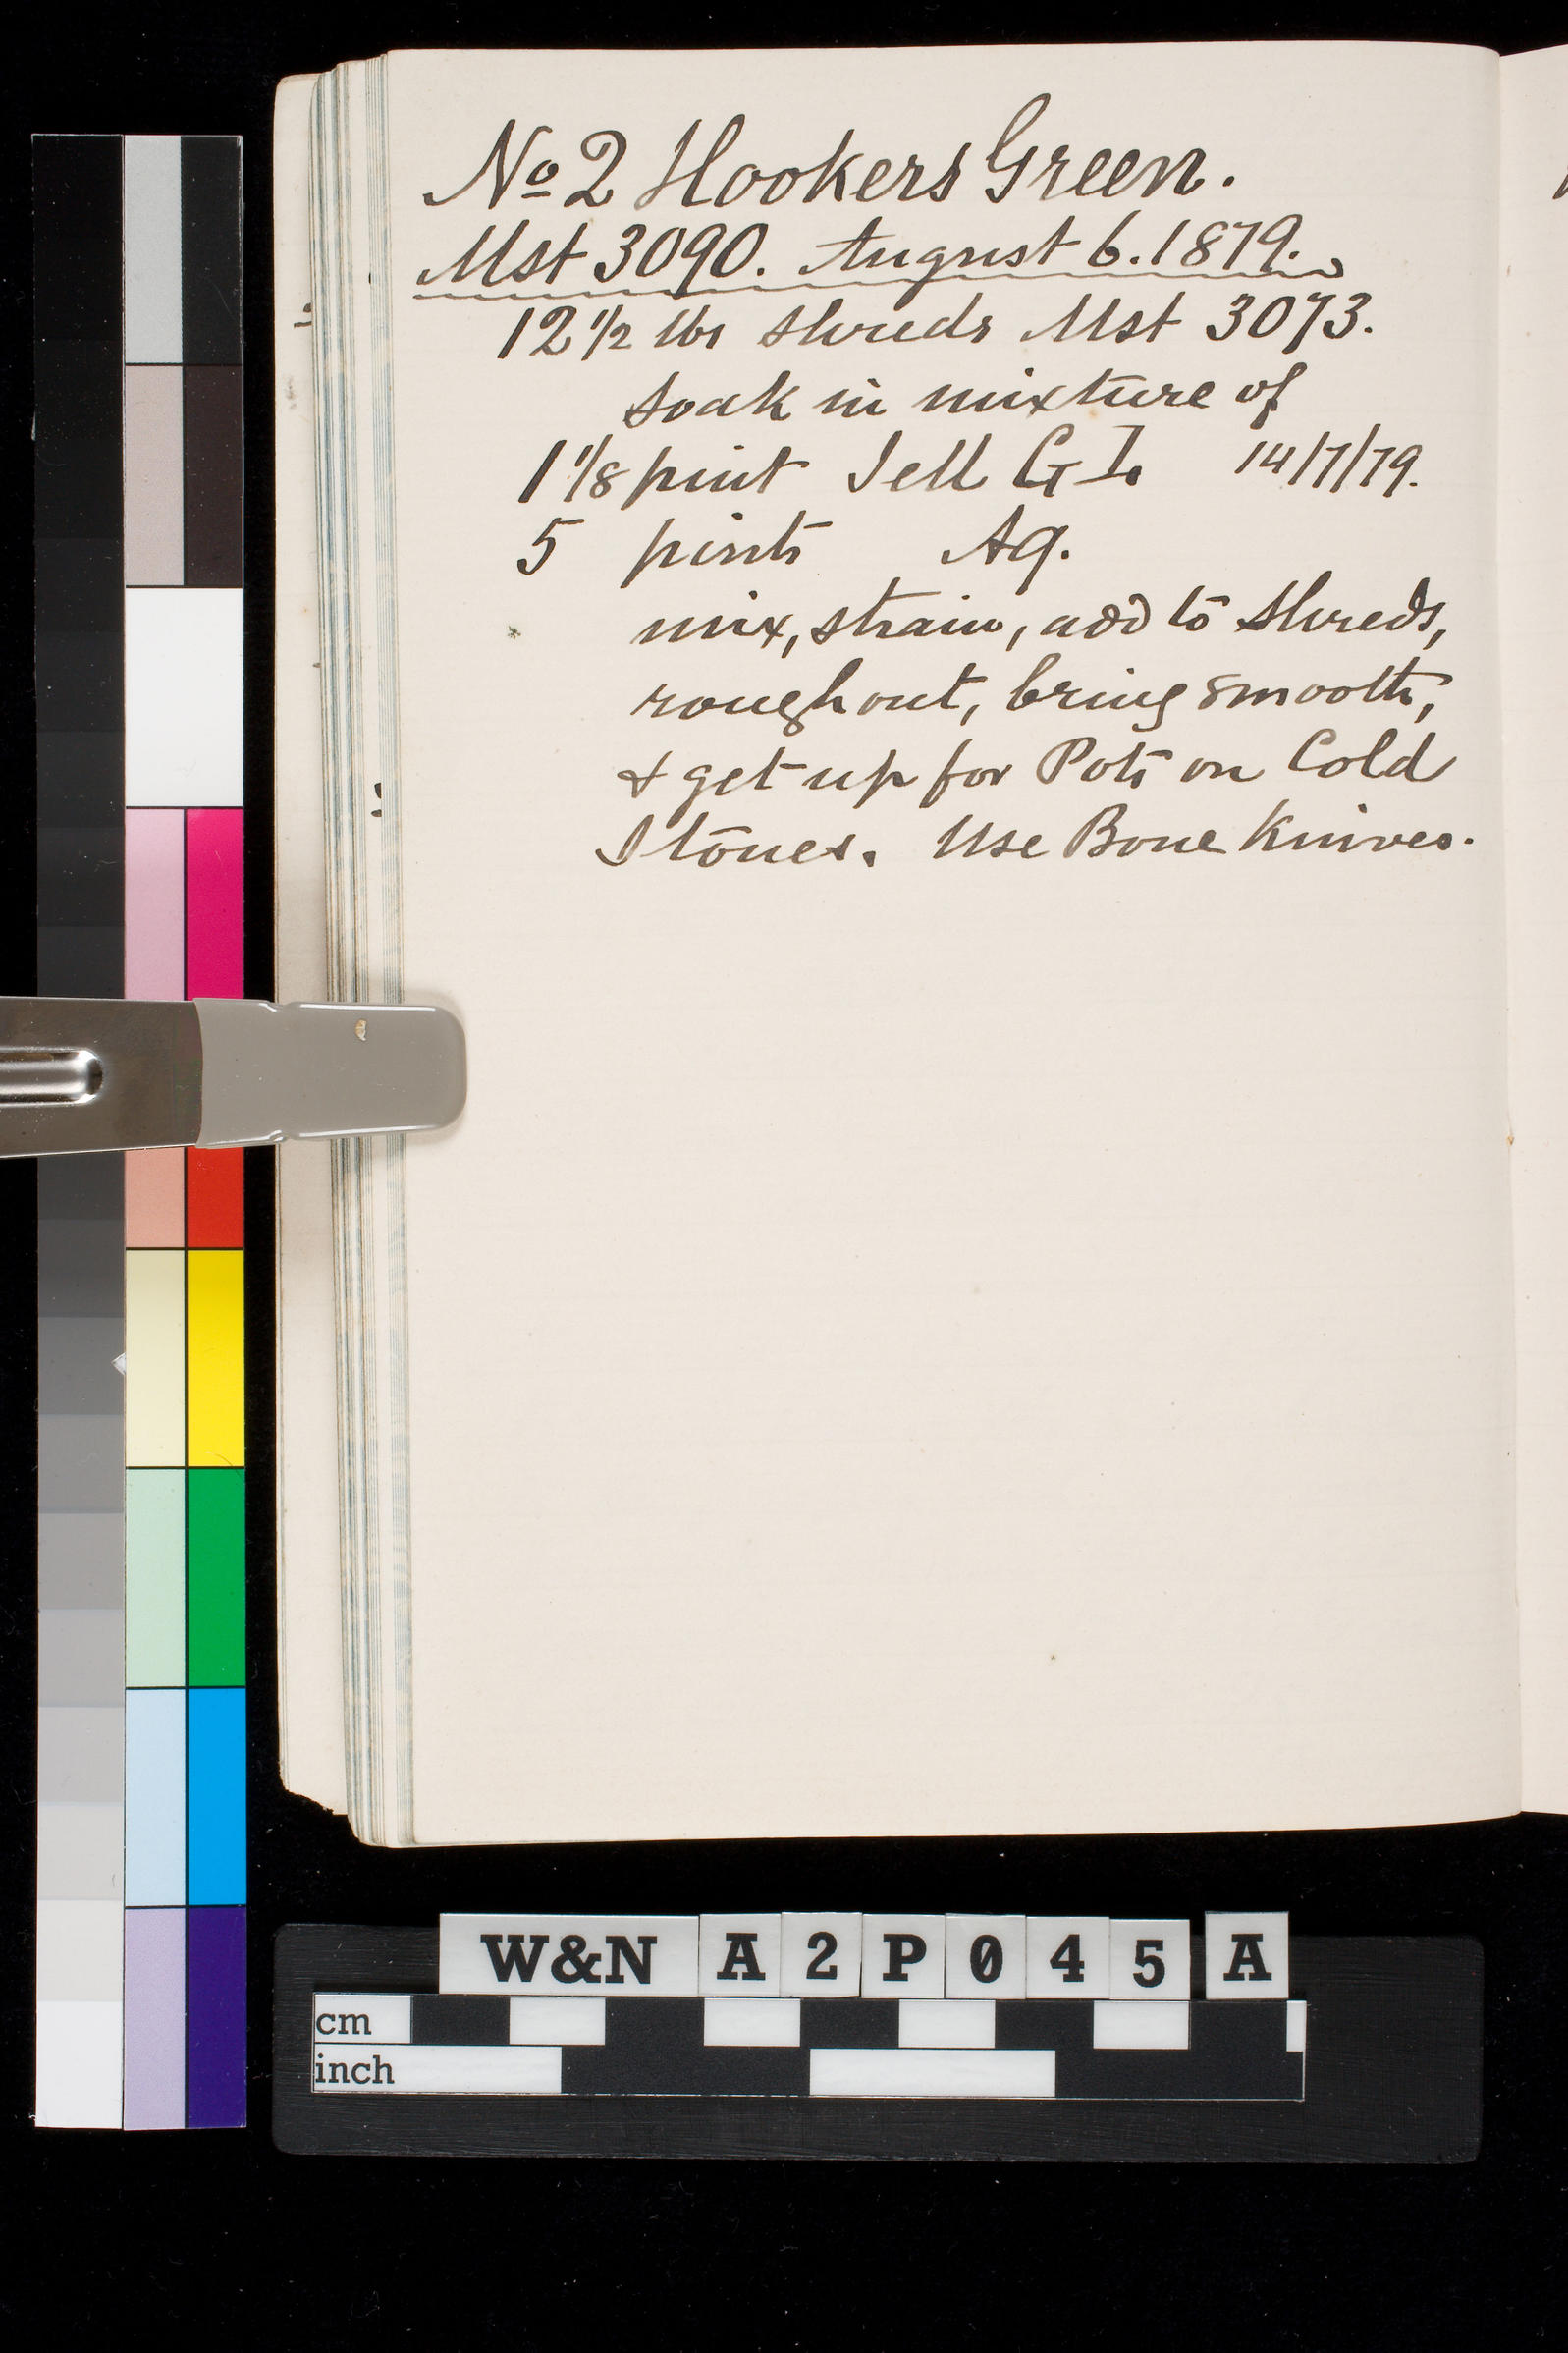 No 2 Hookers Green.
Mst 3090. August 6. 1879.
12 1/2 lbs shreds Mst 3073.
soak in mixture of
1 1/8 pint Jell G I. 14/7/79.
5 pints Aq.
mix, strain, add to shreds,
rough out, bring smooth,
& get up for Pots on Cold
Stones. Use Bone Knives.
W&N A2P045 A
cm
inch